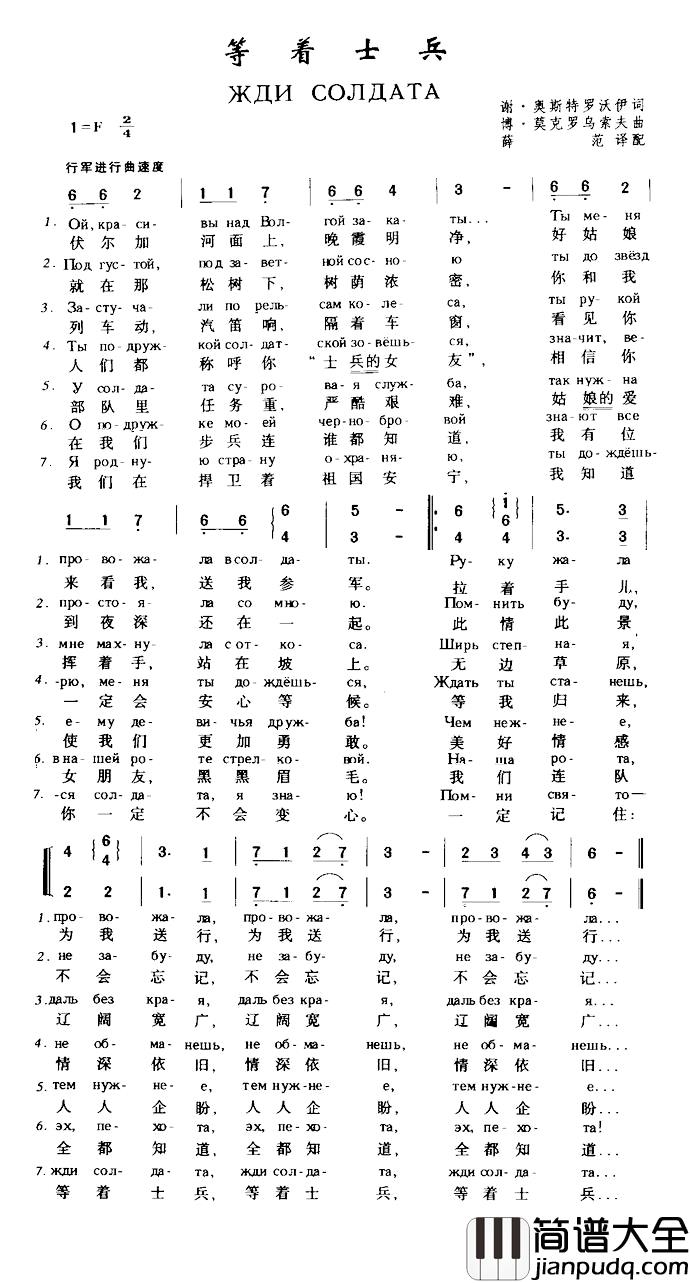 等着士兵
ЖДИ СОЛДАТА
1=F 2/4
谢·奥斯特罗沃伊词
博·莫克罗乌索夫曲
薛 范 译配
行军进行曲速度
6 6 2 | 1 1 7 | 6 6 4 | 3 - | 6 6 2 |
1. Ой, кра- си- вы над Вол- гой за- ка- ты... Ты ме- ня
伏 尔 加 河 面 上, 晚 霞 明 净, 好 姑 娘
2. Под гус- той, под за- вет- ной сос- но- ю ты до звёзд
就 在 那 松 树 下, 树 荫 浓 密, 你 和 我
3. За- сту- ча- ли по рель- сам ко- ле- са, ты ру- кой
列 车 动, 汽 笛 响, 隔 着 车 窗, 看 见 你
4. Ты по- друж- кой сол- дат- ской зо- вёшь- ся, зна- чит, ве-
人 们 都 称 呼 你 “士 兵的 女 友”, 相 信 你
5. У сол- да- та су- ро- ва- я служ- ба, так нуж- на
部 队 里 任 务 重, 严 酷 艰 难, 姑 娘的 爱
6. О по- друж- ке мо- ей чер- но- бро- вой зна- ют все
在 我 们 步 兵 连 谁 都 知 道, 我 有 位
7. Я род- ну- ю стра- ну о- хра- ня- ю, ты до- ждёшь-
我 们 在 捍 卫 着 祖 国 安 宁, 我 知 道
6 6 1/6 5. 3
1 1 7 | 6 6 4 | 5 - 3 - 4 4 3. 3
1. про- во- жа- ла в сол- да- ты. Ру- ку жа- ла
来 看 我, 送 我 参 军。 拉 着 手 儿,
2. про- сто- я- ла со мно- ю. Пом- нить бу- ду,
到 夜 深 还 在 一 起。 此 情 此 景
3. мне мах- ну- ла с от- ко- са. Ширь степ- на- я,
挥 着 手, 站 在 坡 上。 无 边 草 原,
4. -рю, ме- ня ты до- ждёшь- ся, Ждать ты ста- нешь,
一 定 会 安 心 等 候。 等 我 归 来,
5. е- му де- ви- чья друж- ба! Чем неж- не- е,
使 我 们 更 加 勇 敢。 美 好 情 感
6. в на- шей ро- те стрел- ко- вой. На- ша ро- та,
女 朋 友, 黑 黑 眉 毛。 我 们 连 队
7. -ся сол- да- та, я зна- ю! Пом- ни свя- то—
你 一 定 不 会 变 心。 一 定 记 住:
4 6/4 | 3. 1 | 7 1 2 7 | 3 - | 2 3 4 3 | 6 - ‖
2 2 | 1. 1 | 7 1 2 7 | 3 - | 7 1 2 7 | 6 - ‖
1. про- во- жа- ла, про- во- жа- ла, про- во- жа- ла...
为 我 送 行, 为 我 送 行, 为 我 送 行...
2. не за- бу- ду, не за- бу- ду, не за- бу- ду...
不 会 忘 记, 不 会 忘 记, 不 会 忘 记...
3. даль без кра- я, даль без кра- я, даль без кра- я...
辽 阔 宽 广, 辽 阔 宽 广, 辽 阔 宽 广...
4. не об- ма- нешь, не об- ма- нешь, не об- ма- нешь...
情 深 依 旧, 情 深 依 旧, 情 深 依 旧...
5. тем нуж- не- е, тем нуж- не- е, тем нуж- не- е...
人 人 企 盼, 人 人 企 盼, 人 人 企 盼...
6. эх, пе- хо- та, эх, пе- хо- та, эх, пе- хо- та!
全 都 知 道, 全 都 知 道, 全 都 知 道...
7. жди сол- да- та, жди сол- да- та, жди сол- да- та
等 着 士 兵, 等 着 士 兵, 等 着 士 兵...
简谱大全
jianpudq.com